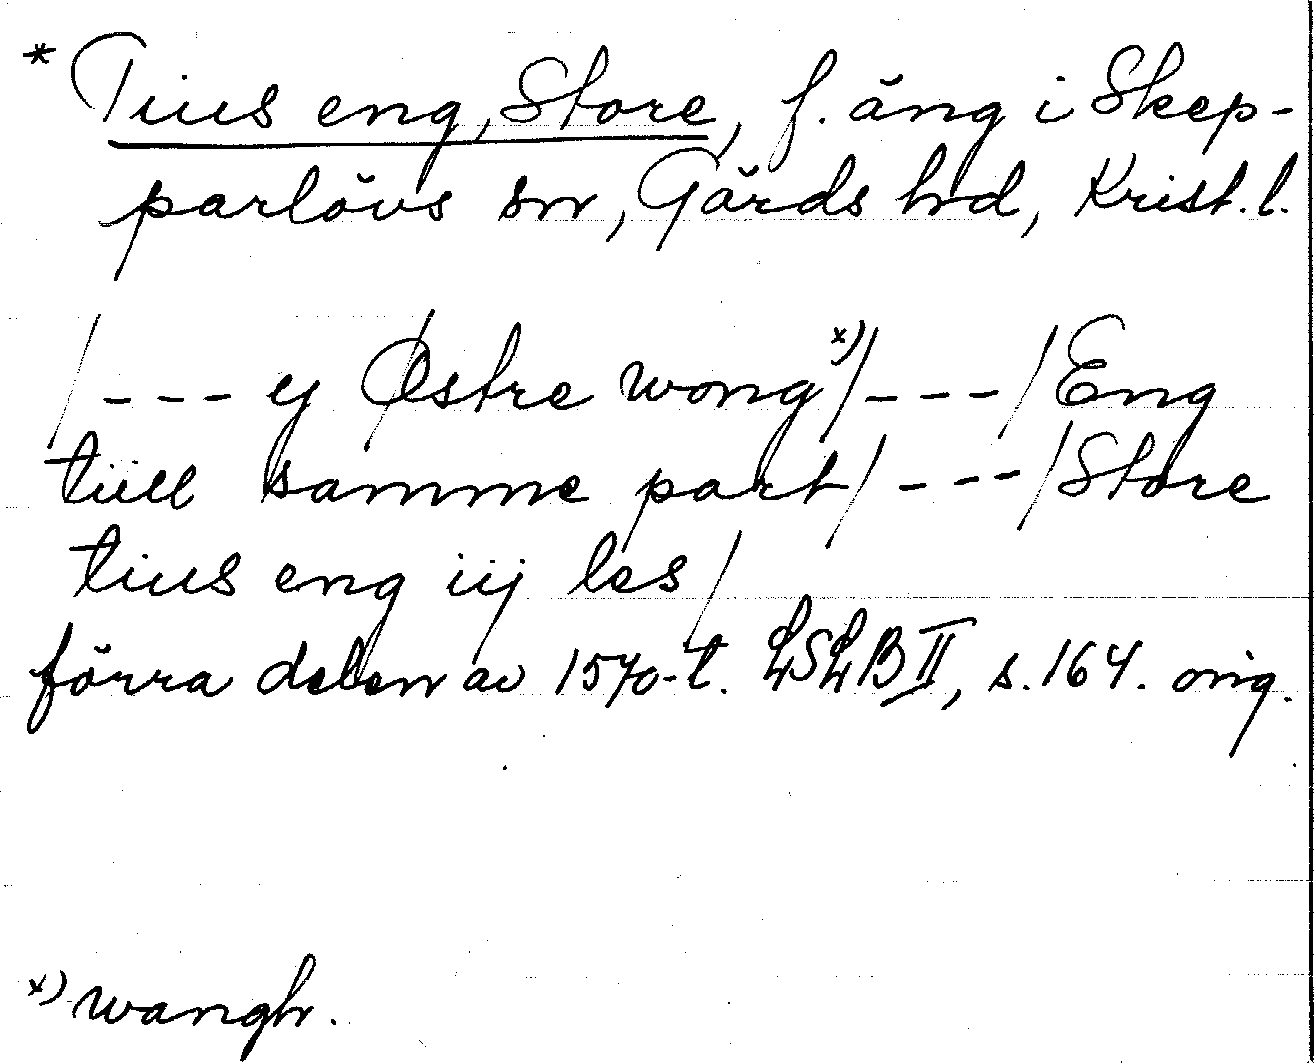 * Tius eng, Store, f. äng i Skep-
parlövs sn, Gärds hd, Krist. l.
/--- ej Østre wong x)/---/Eng
tiill samme part/---/Store
tius eng iij les/
förra delen av 1570-t. LSLB II, s. 164. orig.
x) wangh.